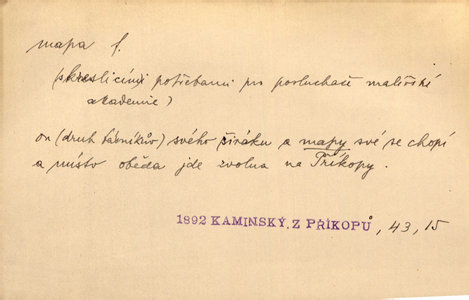 mapa f.
(s kreslicími potřebami pro posluchače malířské
akademie)
on (druh básníkův) svého širáku a mapy své se chopí
a místo oběda jde zvolna na Příkopy.
1892 KAMINSKÝ, Z PŘÍKOPŮ, 43, 15